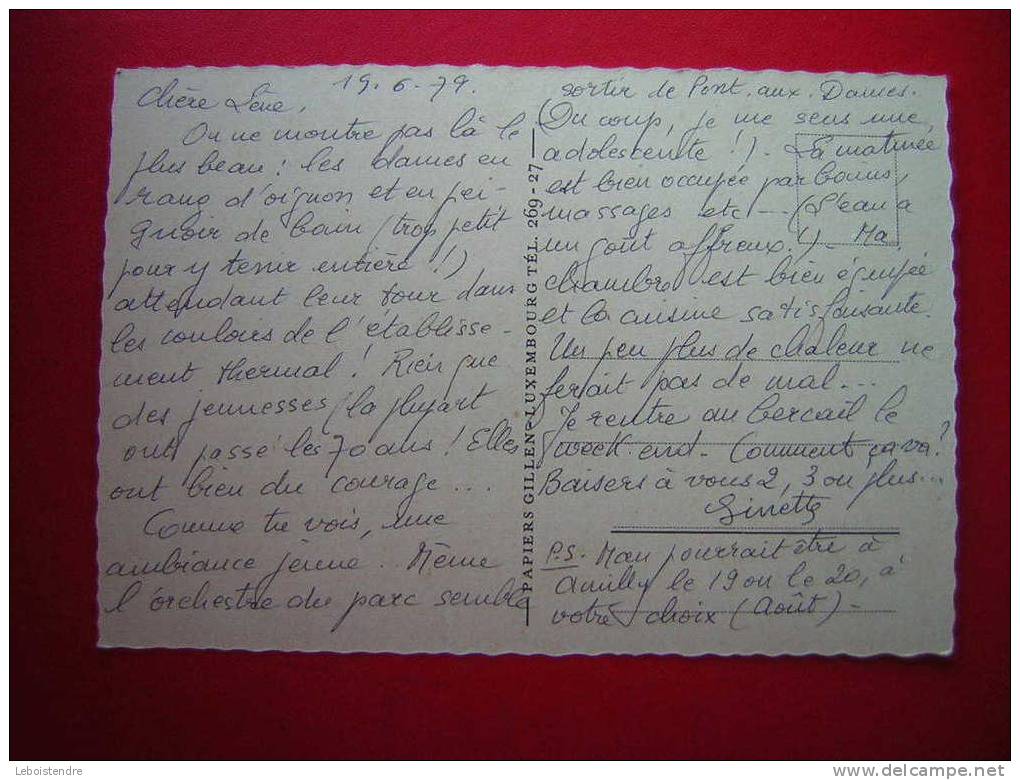 19.6.79
Chère Lène,
On ne montre pas là le
plus beau : les dames en
rang d'oignon et en pei-
gnoir de bain (trop petit
pour y tenir entière !)
attendant leur tour dans
les couloirs de l'établisse-
ment thermal ! Rien que
des jeunesses (la plupart
ont passé les 70 ans ! Elles
ont bien du courage...
Comme tu vois, une
ambiance jeune. Même
l'orchestre du parc semble
sortir de Pont. aux. Dames.
(Du coup, je me sens une
adolescente !) - La matinée
est bien occupée par bains,
massages etc --- (L'eau a
un goût affreux !) - Ma
chambre est bien équipée
et la cuisine satisfaisante.
Un peu plus de chaleur ne
ferait pas de mal...
Je rentre au bercail le
week-end - Comment ça va ?
Baisers à vous 2, 3 ou plus...
Ginette
P.S. Man pourrait être à
Amilly le 19 ou le 20, à
votre choix (Août) -
PAPIERS GILLEN - LUXEMBOURG TÉL. 269-27
Leboistendre
www.delcampe.net